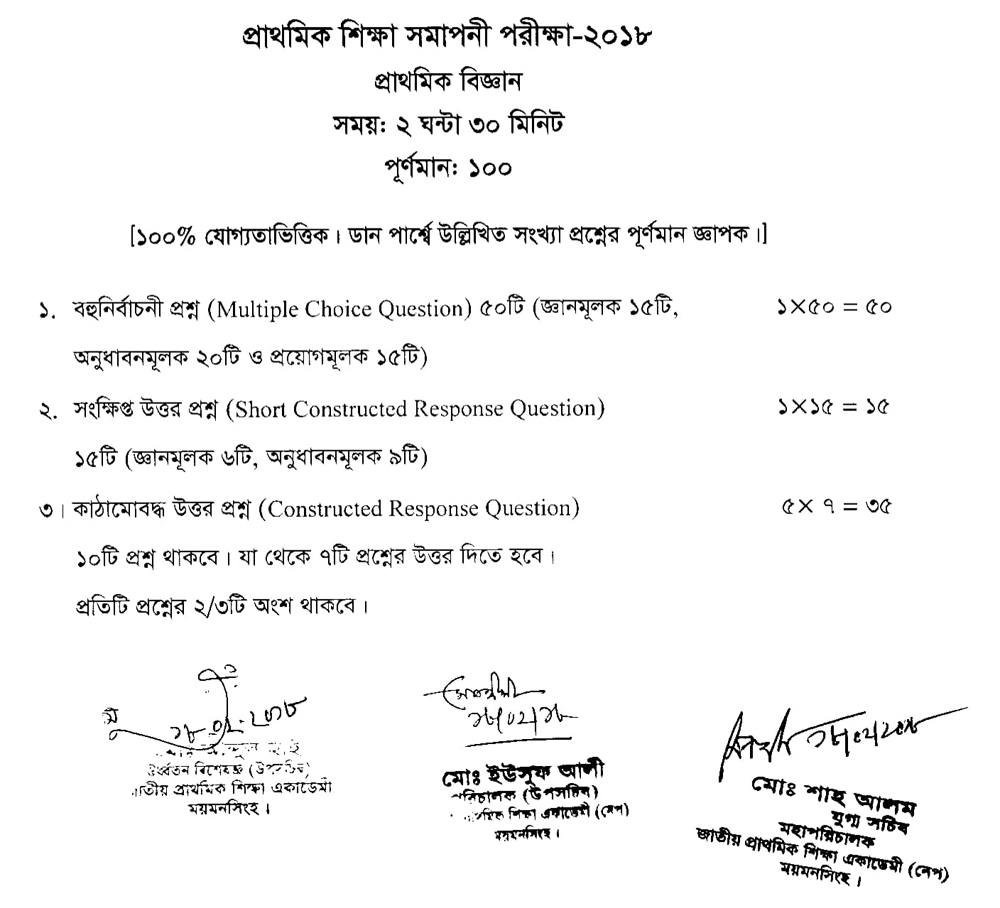 প্রাথমিক শিক্ষা সমাপনী পরীক্ষা-২০১৮
প্রাথমিক বিজ্ঞান
সময়ঃ ২ ঘন্টা ৩০ মিনিট
পূর্ণমান: ১০০
[১০০% যোগ্যতাভিত্তিক। ডান পার্শ্বে উল্লিখিত সংখ্যা প্রশ্নের পূর্ণমান জ্ঞাপক।]
১. বহুনির্বাচনী প্রশ্ন (Multiple Choice Question) ৫০টি (জ্ঞানমূলক ১৫টি, ১×৫০ = ৫০
অনুধাবনমূলক ২০টি ও প্রয়োগমূলক ১৫টি)
২. সংক্ষিপ্ত উত্তর প্রশ্ন (Short Constructed Response Question) ১×১৫ = ১৫
১৫টি (জ্ঞানমূলক ৬টি, অনুধাবনমূলক ৯টি)
৩। কাঠামোবদ্ধ উত্তর প্রশ্ন (Constructed Response Question) ৫× ৭ = ৩৫
১০টি প্রশ্ন থাকবে। যা থেকে ৭টি প্রশ্নের উত্তর দিতে হবে।
প্রতিটি প্রশ্নের ২/৩টি অংশ থাকবে।
ঊর্ধ্বতন বিশেষজ্ঞ (উপসচিব)
জাতীয় প্রাথমিক শিক্ষা একাডেমী
ময়মনসিংহ।
১৮/০২/১৮
মোঃ ইউসুফ আলী
পরিচালক (উপসচিব)
প্রাথমিক শিক্ষা একাডেমী (নেপ)
ময়মনসিংহ।
মোঃ শাহ আলম
যুগ্ম সচিব
মহাপরিচালক
জাতীয় প্রাথমিক শিক্ষা একাডেমী (নেপ)
ময়মনসিংহ।